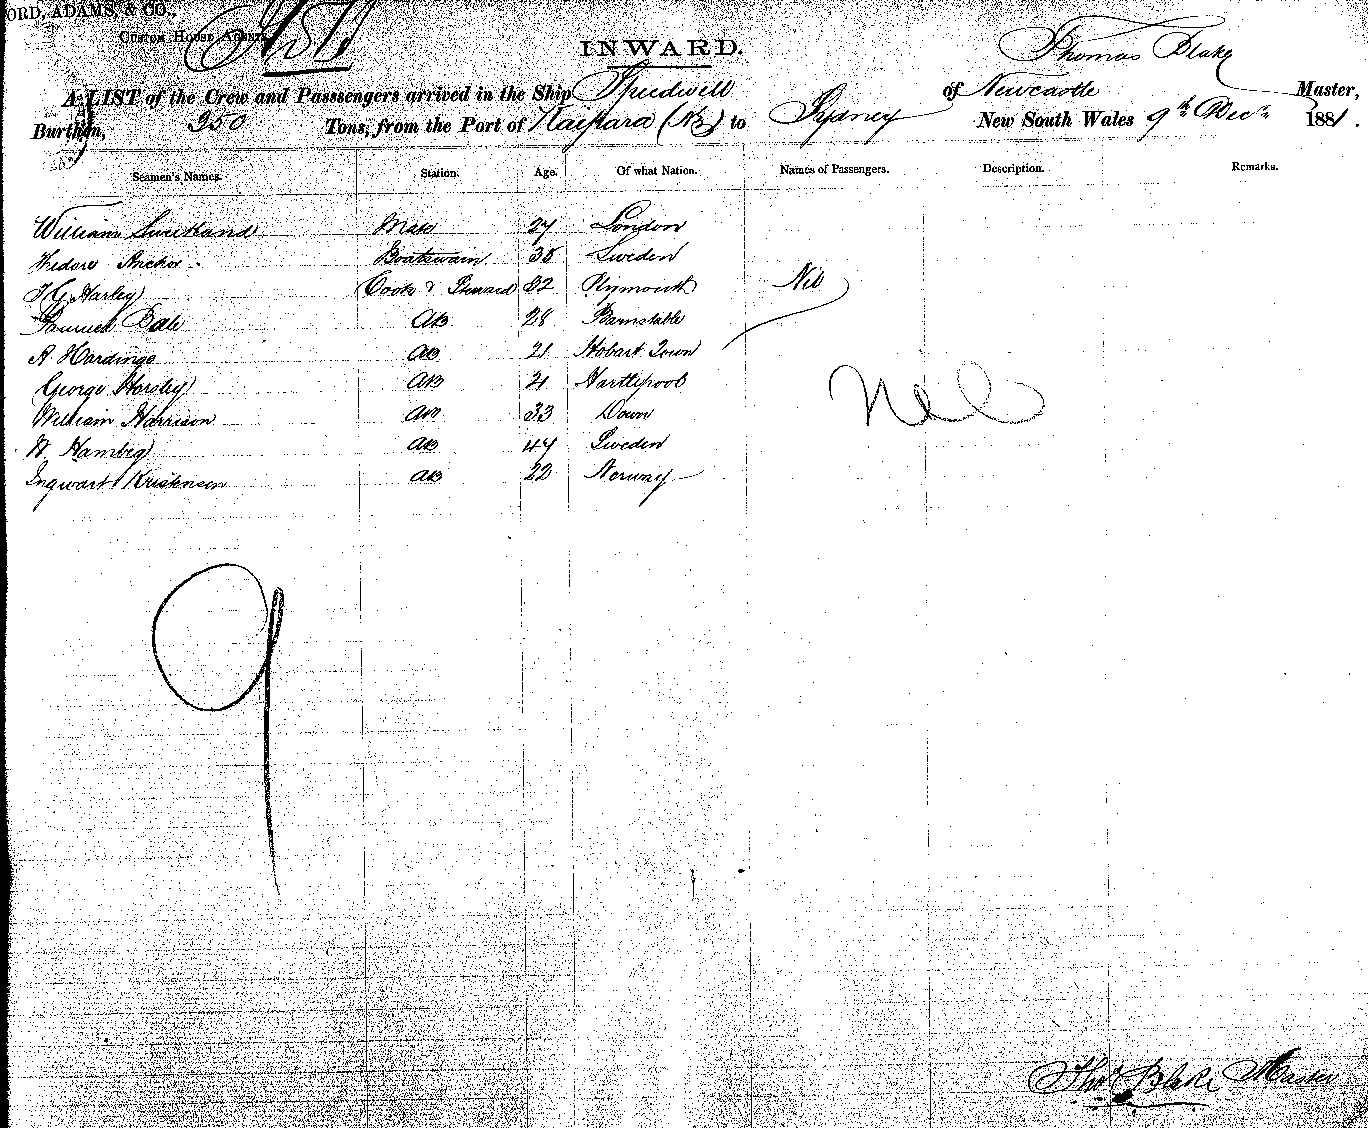 ORD, ADAMS, & CO.,
Custom House Agents
INWARD.
Thomas Blake
A LIST of the Crew and Passsengers arrived in the Ship Speedwell of Newcastle Master,
Burthen, 350 Tons, from the Port of Kaipara (NZ) to Sydney New South Wales 9th Decr 1881.
Seamen's Names. Station. Age. Of what Nation. Names of Passengers. Description. Remarks.
William Mate 27 London
Anchor Boatswain 38 Sweden
Harley Cook & Steward 32 Plymouth Nil
Samuel Dale AB 28 Barnstable
A Hardinge AB 21 Hobart Town
George Horsley AB 21 Hartlepool Nil
William Harrison AB 33 Down
Hamberg AB 44 Sweden
Ingwart Kristensen AB 22 Norway
9
Thos Blake Master